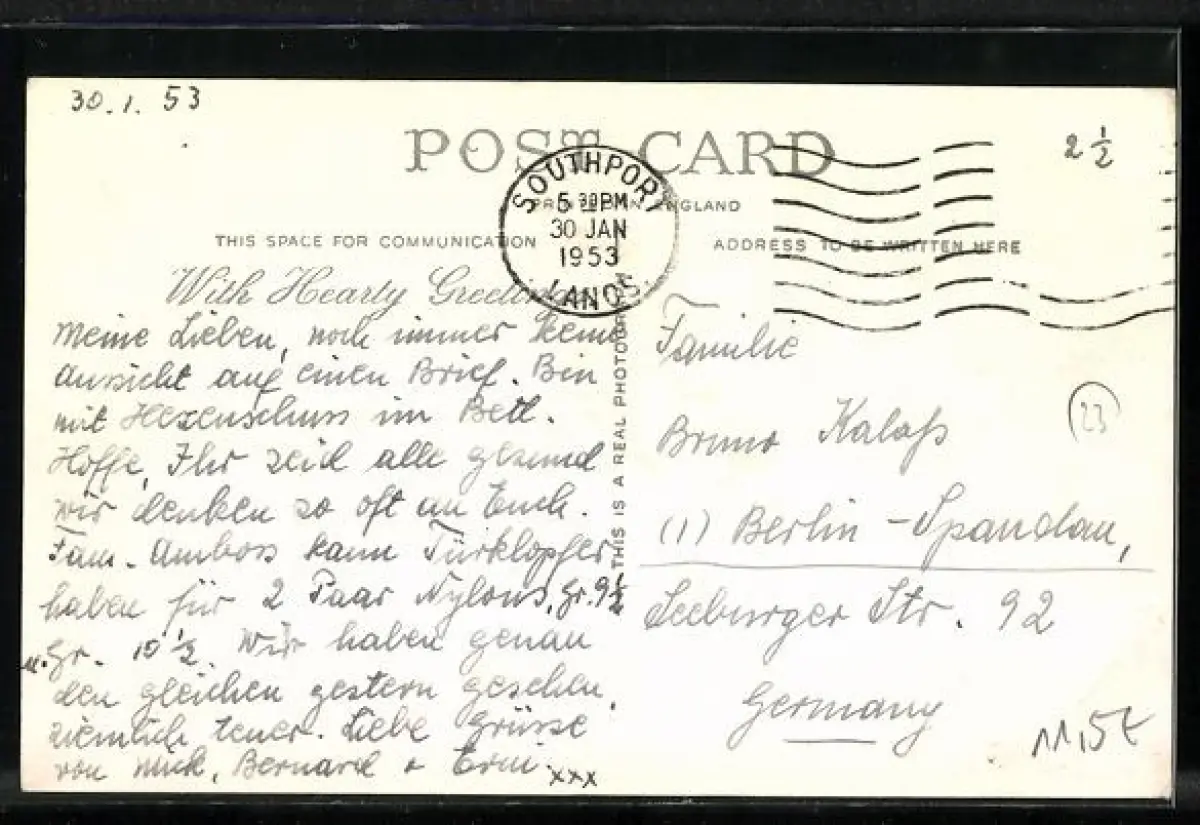 30. 1. 53
POST CARD
2 1/2
SOUTHPORT
5 30 PM
30 JAN
1953
LANCS
PRINTED IN ENGLAND
THIS SPACE FOR COMMUNICATION
ADDRESS TO BE WRITTEN HERE
With Hearty Greetings
THIS IS A REAL PHOTOGRAPH
Meine Lieben, noch immer keine
Aussicht auf einen Brief. Bin
mit Hexenschuss im Bett.
Hoffe, Ihr seid alle gesund
wir denken so oft an Euch.
Fam. Amboss kann Türklopfer
haben für 2 Paar Nylons, Gr. 9 1/2
u. Gr. 10 1/2. Wir haben genau
den gleichen gestern gesehen,
ziemlich teuer. Liebe Grüsse
von Mick, Bernard + Erni. xxx
Familie
Bruno Kalaß
23
(1) Berlin - Spandau,
Seeburger Str. 92
Germany